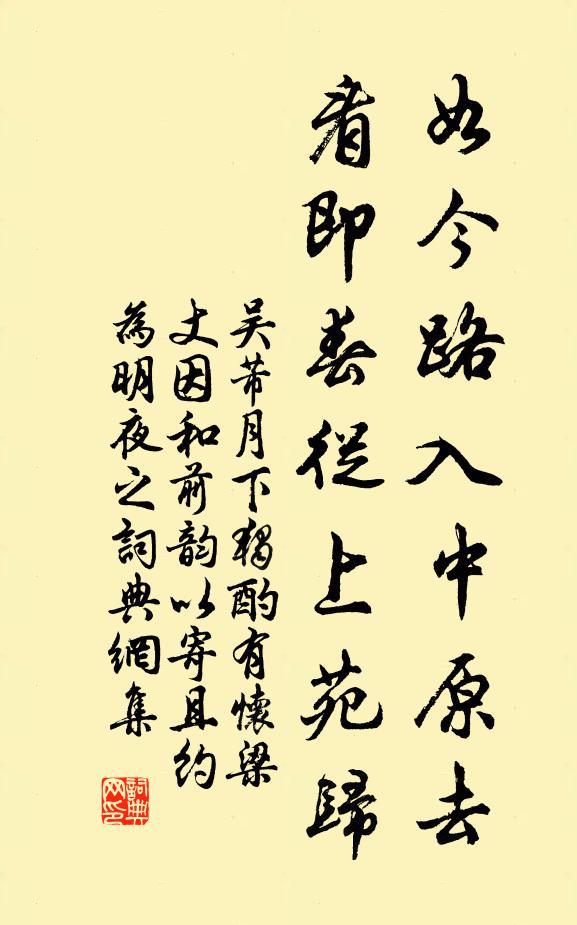 如今路入中原去
看即春從上苑歸
吴芾月下獨酌有懷梁
丈因和前韵以寄且約
為明夜之詞典網集
詞典網印